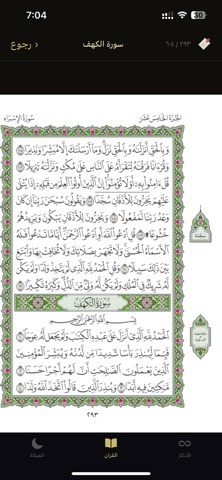 7:04
30
رجوع ›
سورة الكهف
٢٩٣ / ٦٠٤
سُورَةُ الإِسْرَاءِ
الجُزْءُ الخَامِسَ عَشَرَ
وَبِالْحَقِّ أَنزَلْنَاهُ وَبِالْحَقِّ نَزَلَ وَمَا أَرْسَلْنَاكَ إِلَّا مُبَشِّرًا وَنَذِيرًا ۝١٠٥
وَقُرْآنًا فَرَقْنَاهُ لِتَقْرَأَهُ عَلَى النَّاسِ عَلَىٰ مُكْثٍ وَنَزَّلْنَاهُ تَنزِيلًا ۝١٠٦
قُلْ آمِنُوا بِهِ أَوْ لَا تُؤْمِنُوا إِنَّ الَّذِينَ أُوتُوا الْعِلْمَ مِن قَبْلِهِ إِذَا يُتْلَىٰ
عَلَيْهِمْ يَخِرُّونَ لِلْأَذْقَانِ سُجَّدًا ۝١٠٧ وَيَقُولُونَ سُبْحَانَ رَبِّنَا إِن كَانَ
وَعْدُ رَبِّنَا لَمَفْعُولًا ۝١٠٨ وَيَخِرُّونَ لِلْأَذْقَانِ يَبْكُونَ وَيَزِيدُهُمْ
خُشُوعًا ۩ ۝١٠٩ قُلِ ادْعُوا اللَّهَ أَوِ ادْعُوا الرَّحْمَٰنَ أَيًّا مَّا تَدْعُوا فَلَهُ
الْأَسْمَاءُ الْحُسْنَىٰ وَلَا تَجْهَرْ بِصَلَاتِكَ وَلَا تُخَافِتْ بِهَا وَابْتَغِ
بَيْنَ ذَٰلِكَ سَبِيلًا ۝١١٠ وَقُلِ الْحَمْدُ لِلَّهِ الَّذِي لَمْ يَتَّخِذْ وَلَدًا وَلَمْ يَكُن لَّهُ
شَرِيكٌ فِي الْمُلْكِ وَلَمْ يَكُن لَّهُ وَلِيٌّ مِّنَ الذُّلِّ وَكَبِّرْهُ تَكْبِيرًا ۝١١١
سُورَةُ الكَهْفِ
بِسْمِ اللَّهِ الرَّحْمَٰنِ الرَّحِيمِ
الْحَمْدُ لِلَّهِ الَّذِي أَنزَلَ عَلَىٰ عَبْدِهِ الْكِتَابَ وَلَمْ يَجْعَل لَّهُ عِوَجًا ۝١
قَيِّمًا لِّيُنذِرَ بَأْسًا شَدِيدًا مِّن لَّدُنْهُ وَيُبَشِّرَ الْمُؤْمِنِينَ
الَّذِينَ يَعْمَلُونَ الصَّالِحَاتِ أَنَّ لَهُمْ أَجْرًا حَسَنًا ۝٢
مَّاكِثِينَ فِيهِ أَبَدًا ۝٣ وَيُنذِرَ الَّذِينَ قَالُوا اتَّخَذَ اللَّهُ وَلَدًا ۝٤
٢٩٣
الصلاة
القرآن
الأذكار